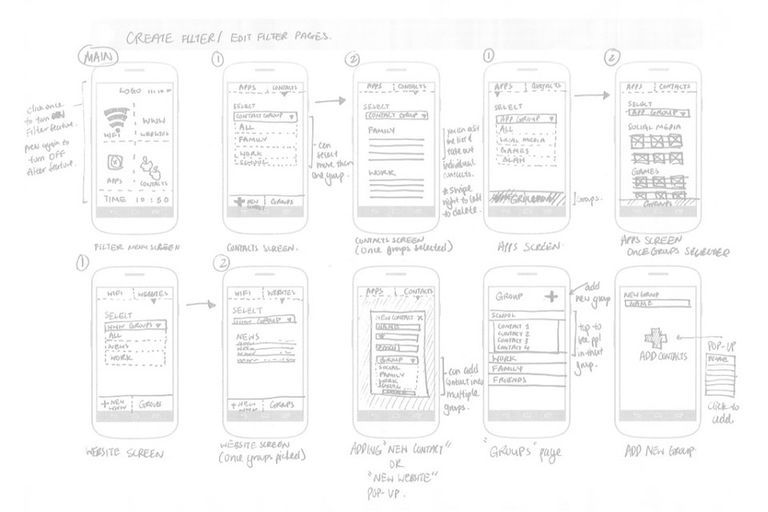 CREATE FILTER/ EDIT FILTER PAGES.
MAIN
click once
to turn ON
Filter feature.
press again to
turn OFF
filter feature.
LOGO
WIFI
WWW
WEBSITES
APPS
CONTACTS
TIME 10:50
FILTER MENU SCREEN
1
APPS CONTACTS
SELECT
CONTACT GROUP
ALL
FAMILY
WORK
SCHOOL
+ NEW
GROUPS
- can
select
more than
one group.
CONTACTS SCREEN
2
APPS CONTACTS
SELECT
CONTACT GROUP
FAMILY
WORK
you can edit
the list &
take out
individual
contacts.
* swipe
right to left
to delete.
CONTACTS SCREEN
(once groups selected)
1
APPS CONTACTS
SELECT
APP GROUP
ALL
SOCIAL MEDIA
GAMES
Groups.
APPS SCREEN
2
APPS CONTACTS
SELECT
APP GROUP
SOCIAL MEDIA
GAMES
GROUPS
APPS SCREEN
ONCE GROUPS SELECTED
1
WIFI WEBSITES
SELECT
WWW GROUPS
ALL
NEWS
WORK
+ NEW
WWW
GROUPS
WEBSITE SCREEN
2
WIFI WEBSITES
SELECT
WWW GROUP
NEWS
+ NEW
WWW
GROUPS
WEBSITE SCREEN
(once groups picked)
APPS CONTACTS
NEW CONTACT X
NAME
GROUP
SOCIAL
FAMILY
WORK
SCHOOL
- can add
contact into
multiple
groups.
ADDING "NEW CONTACT"
OR
"NEW WEBSITE"
POP-UP.
GROUP +
add
new group
SCHOOL
CONTACT 1
CONTACT 2
CONTACT 3
CONTACT 4
WORK
FAMILY
FRIENDS
tap to
see ppl
in that
group.
"GROUPS" page
NEW GROUP
NAME
ADD CONTACTS
POP-UP
click to
add.
ADD NEW GROUP